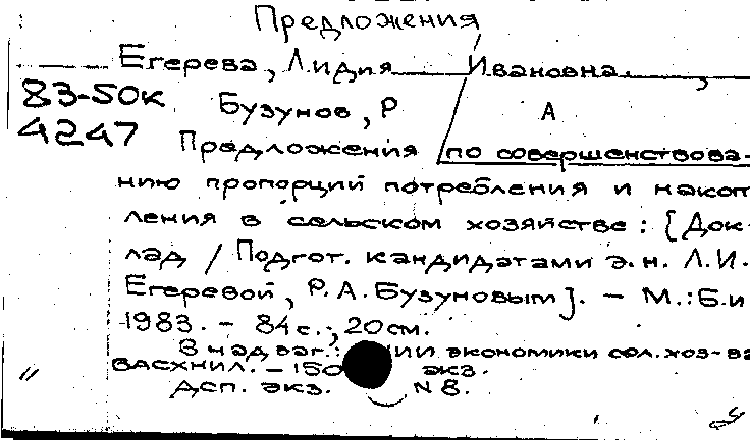 Предложения
Егерева, Лидия Ивановна,
83-50к Бузунов, Р А
4247 Предложения по совершенствова-
нию пропорций потребления и накоп
ления в сельском хозяйстве: [Док-
лад / Подгот. кандидатами э.н. Л.И.
Егеревой, Р.А.Бузуновым]. - М.:Б.и
1983. - 84 с.; 20 см.
В надзаг.: экономики сел.хоз-ва
ВАСХНИЛ. - 150 экз.
Дсп. экз. N 8.